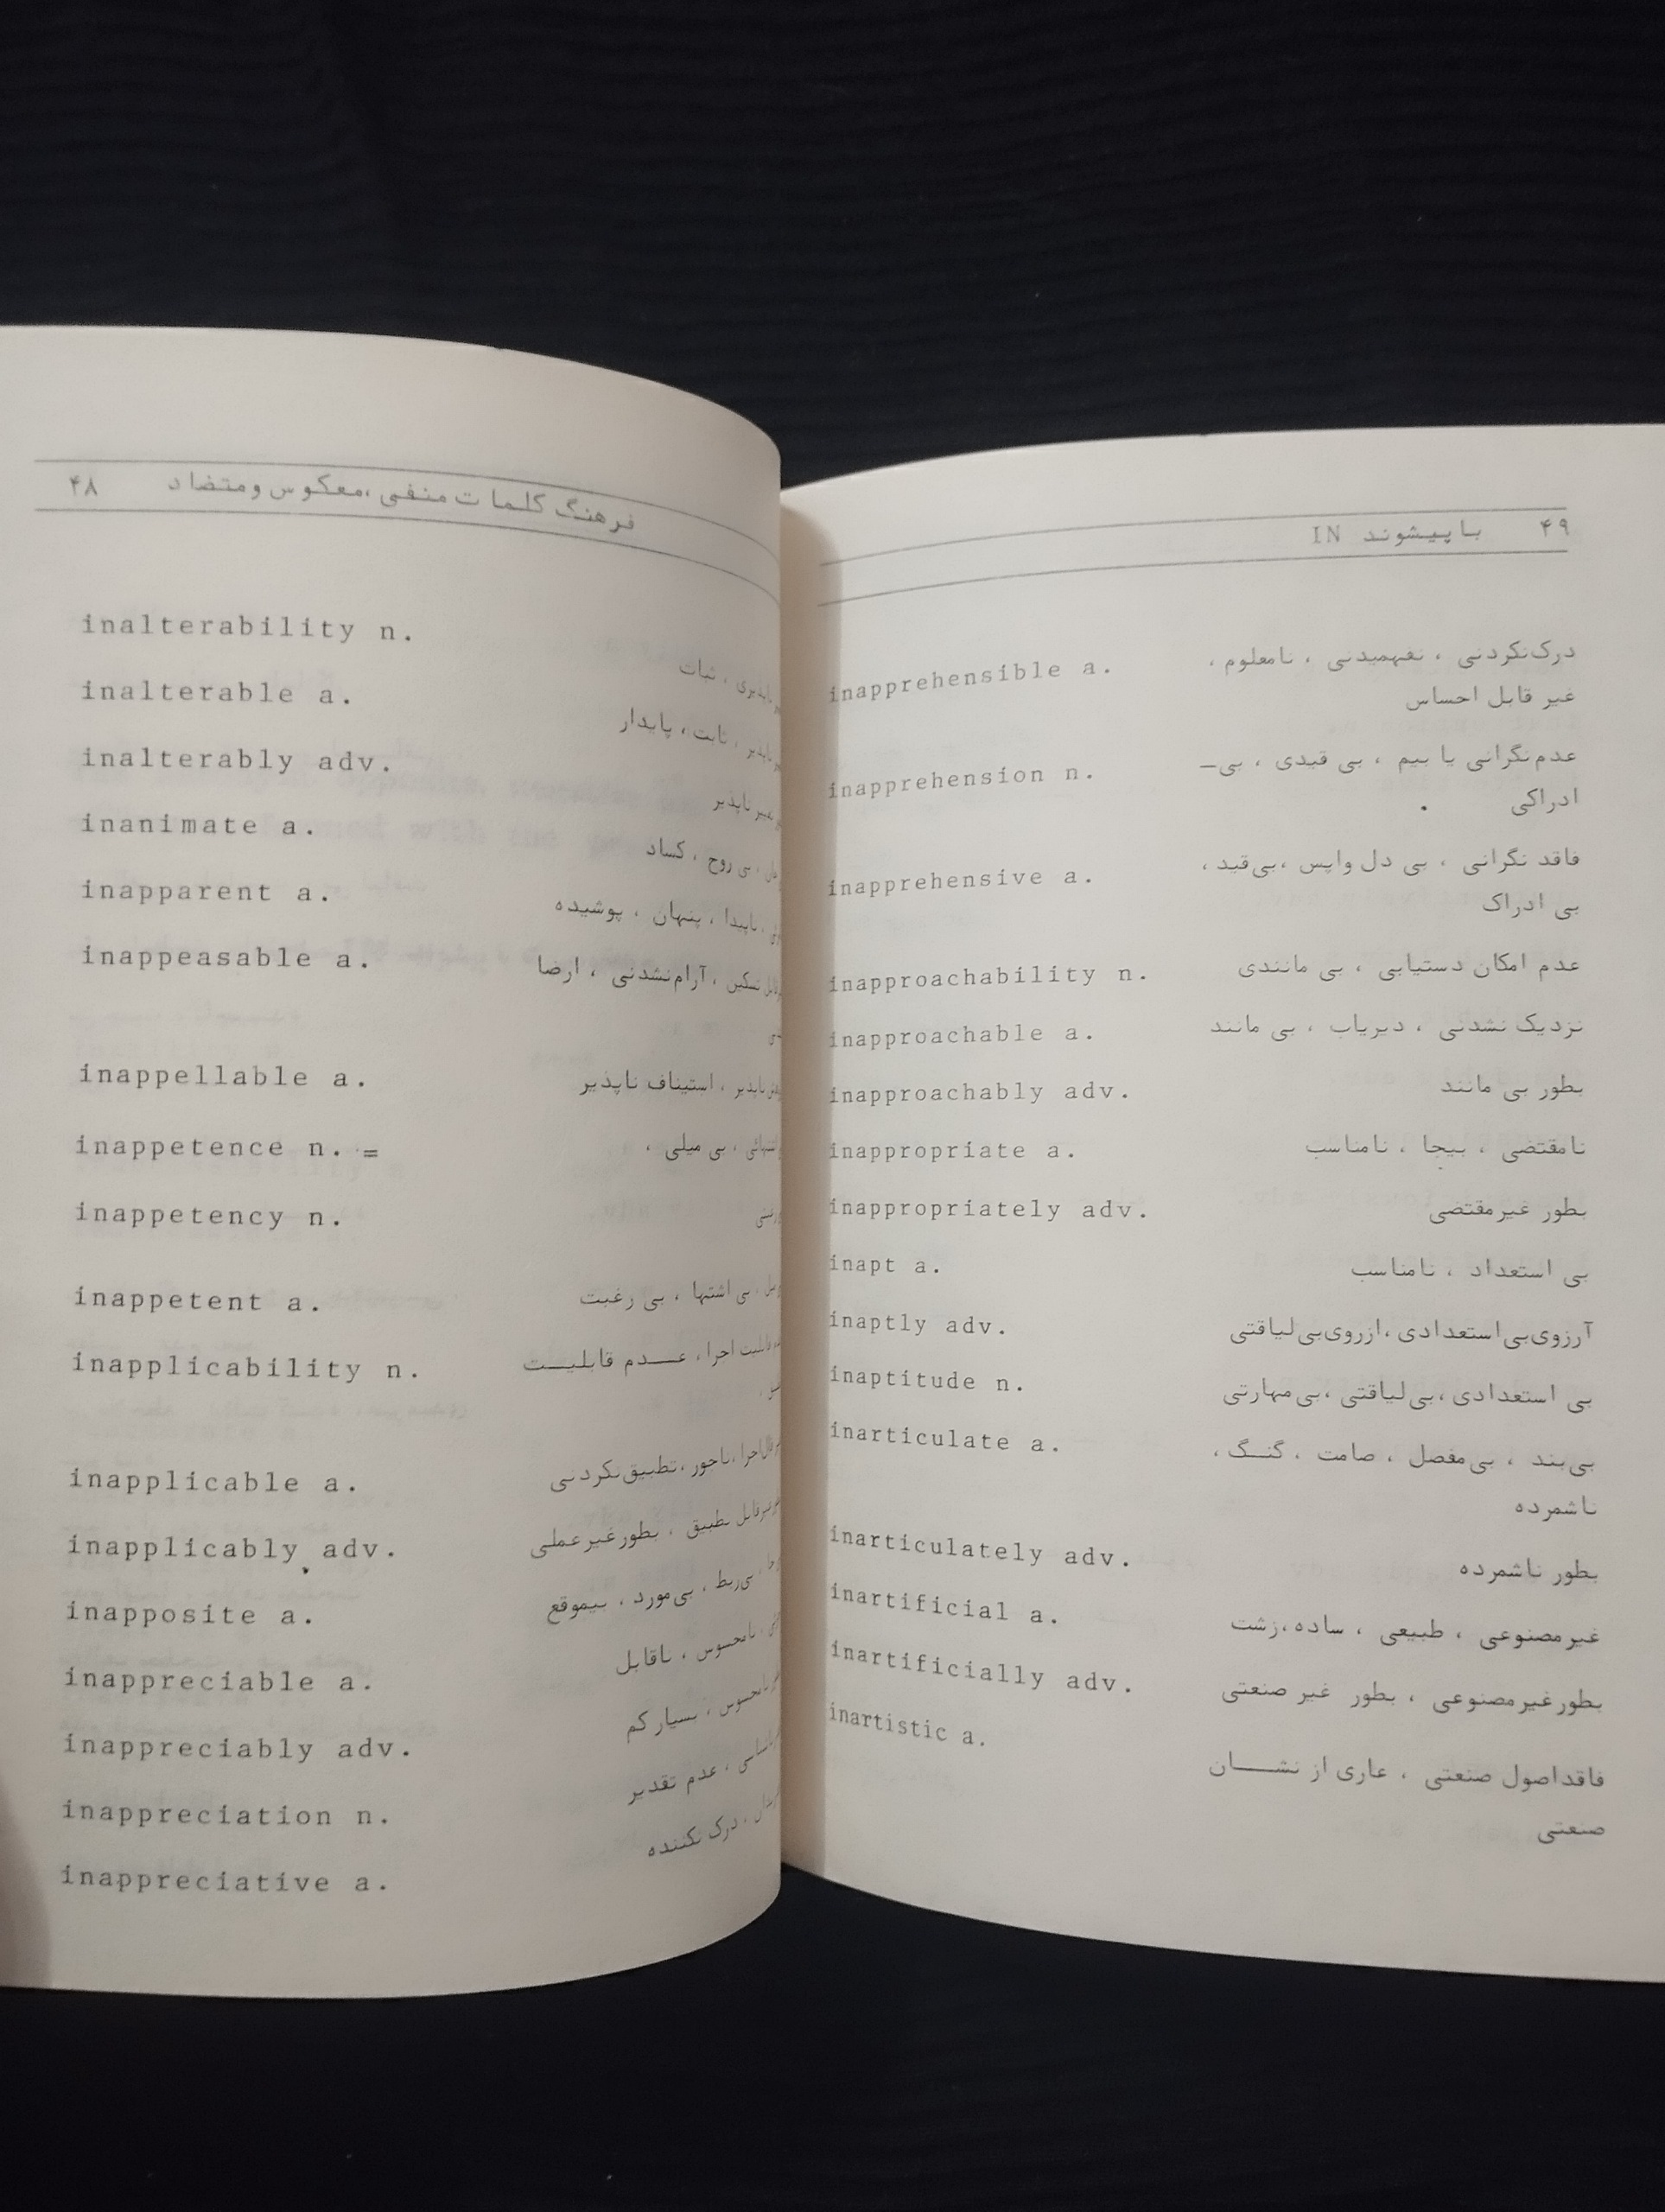 ۴۸ فرهنگ کلمات منفی ،معکوس ومتضاد
inalterability n. ، ثبات
inalterable a. ، ثابت ، پایدار
inalterably adv. تغییر ناپذیر
inanimate a. ، بی روح ، کساد
inapparent a. ، ناپیدا ، پنهان ، پوشیده
inappeasable a. تسکین ، آرام‌نشدنی ، ارضا
inappellable a. ، استیناف ناپذیر
inappetence n. = ، بی میلی ،
inappetency n.
inappetent a. ، بی اشتها ، بی رغبت
inapplicability n. اجرا ، عدم قابلیت
inapplicable a. ،ناجور ،تطبیق‌نکردنی
inapplicably adv. تطبیق ، بطورغیرعملی
inapposite a. ، بی‌ربط ، بی‌مورد ، بیموقع
inappreciable a. ، نامحسوس ، ناقابل
inappreciably adv. نامحسوس ، بسیارکم
inappreciation n. ، عدم تقدیر
inappreciative a. ، درک نکننده
۴۹ باپیشوند IN
inapprehensible a. درک‌نکردنی ، نفهمیدنی ، نامعلوم ،
غیر قابل احساس
inapprehension n. عدم‌نگرانی یا بیم ، بی قیدی ، بی–
ادراکی
inapprehensive a. فاقد نگرانی ، بی دل واپس ،بی‌قید ،
بی ادراک
inapproachability n. عدم امکان دستیابی ، بی مانندی
inapproachable a. نزدیک نشدنی ، دیریاب ، بی مانند
inapproachably adv. بطور بی مانند
inappropriate a. نامقتضی ، بیجا ، نامناسب
inappropriately adv. بطور غیرمقتضی
inapt a. بی استعداد ، نامناسب
inaptly adv. آرزوی‌بی‌استعدادی ،ازروی‌بی‌لیاقتی
inaptitude n. بی استعدادی ،بی‌لیاقتی ،بی‌مهارتی
inarticulate a. بی‌بند ، بی‌مفصل ، صامت ، گنگ ،
ناشمرده
inarticulately adv. بطور ناشمرده
inartificial a. غیرمصنوعی ، طبیعی ، ساده ،زشت
inartificially adv. بطورغیرمصنوعی ، بطور غیر صنعتی
inartistic a. فاقداصول صنعتی ، عاری از نشان
صنعتی